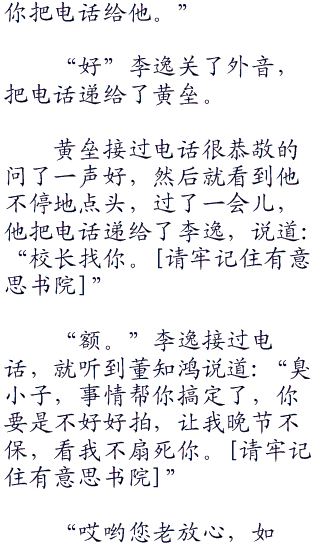 你把电话给他。”
“好”李逸关了外音，
把电话递给了黄垒。
黄垒接过电话很恭敬的
问了一声好，然后就看到他
不停地点头，过了一会儿，
他把电话递给了李逸，说道：
“校长找你。[请牢记住有意
思书院]”
“额。”李逸接过电
话，就听到董知鸿说道：“臭
小子，事情帮你搞定了，你
要是不好好拍，让我晚节不
保，看我不扇死你。[请牢记
住有意思书院]”
“哎哟您老放心，如